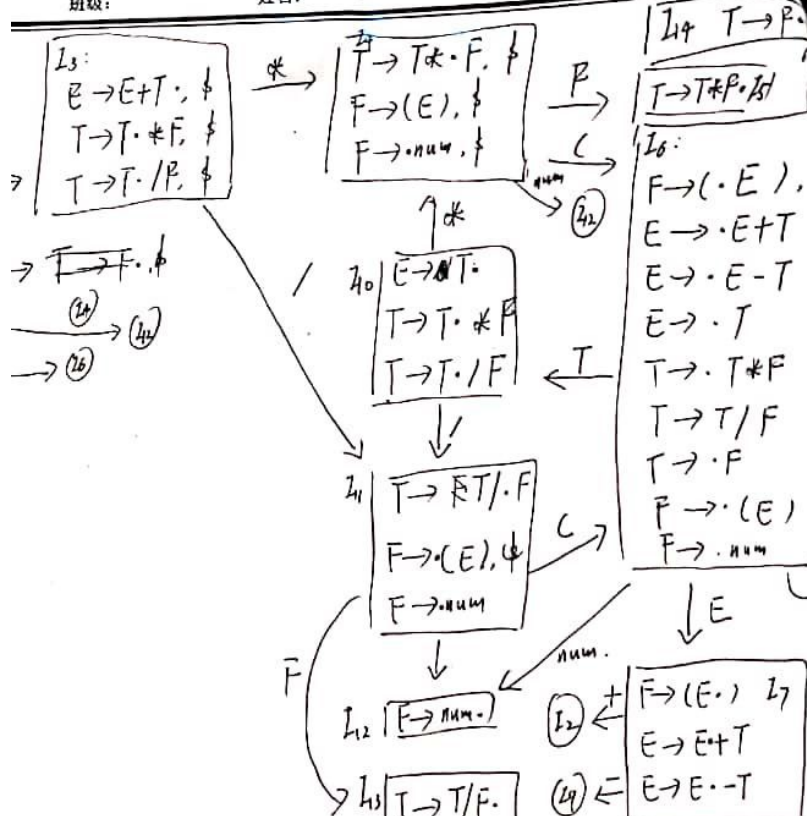 班级:
I3:
E→E+T·, $
T→T·*F, $
T→T·/F, $
*
I4
T→T*·F, $
F→(E), $
F→·num, $
F
(
num
I12
I14 T→F·
T→T*F· I5
I6:
F→(·E),
E→·E+T
E→·E-T
E→·T
T→·T*F
T→T/F
T→·F
F→·(E)
F→·num
T→F·, $
I4
I12
I6
/
*
I10
E→T·
T→T·*F
T→T·/F
T
/
I11
T→T/·F
F→·(E), $
F→·num
(
E
F
num.
I12 F→num·
I13 T→T/F·
I2
+
F→(E·) I7
E→E·+T
I9
-
E→E·-T